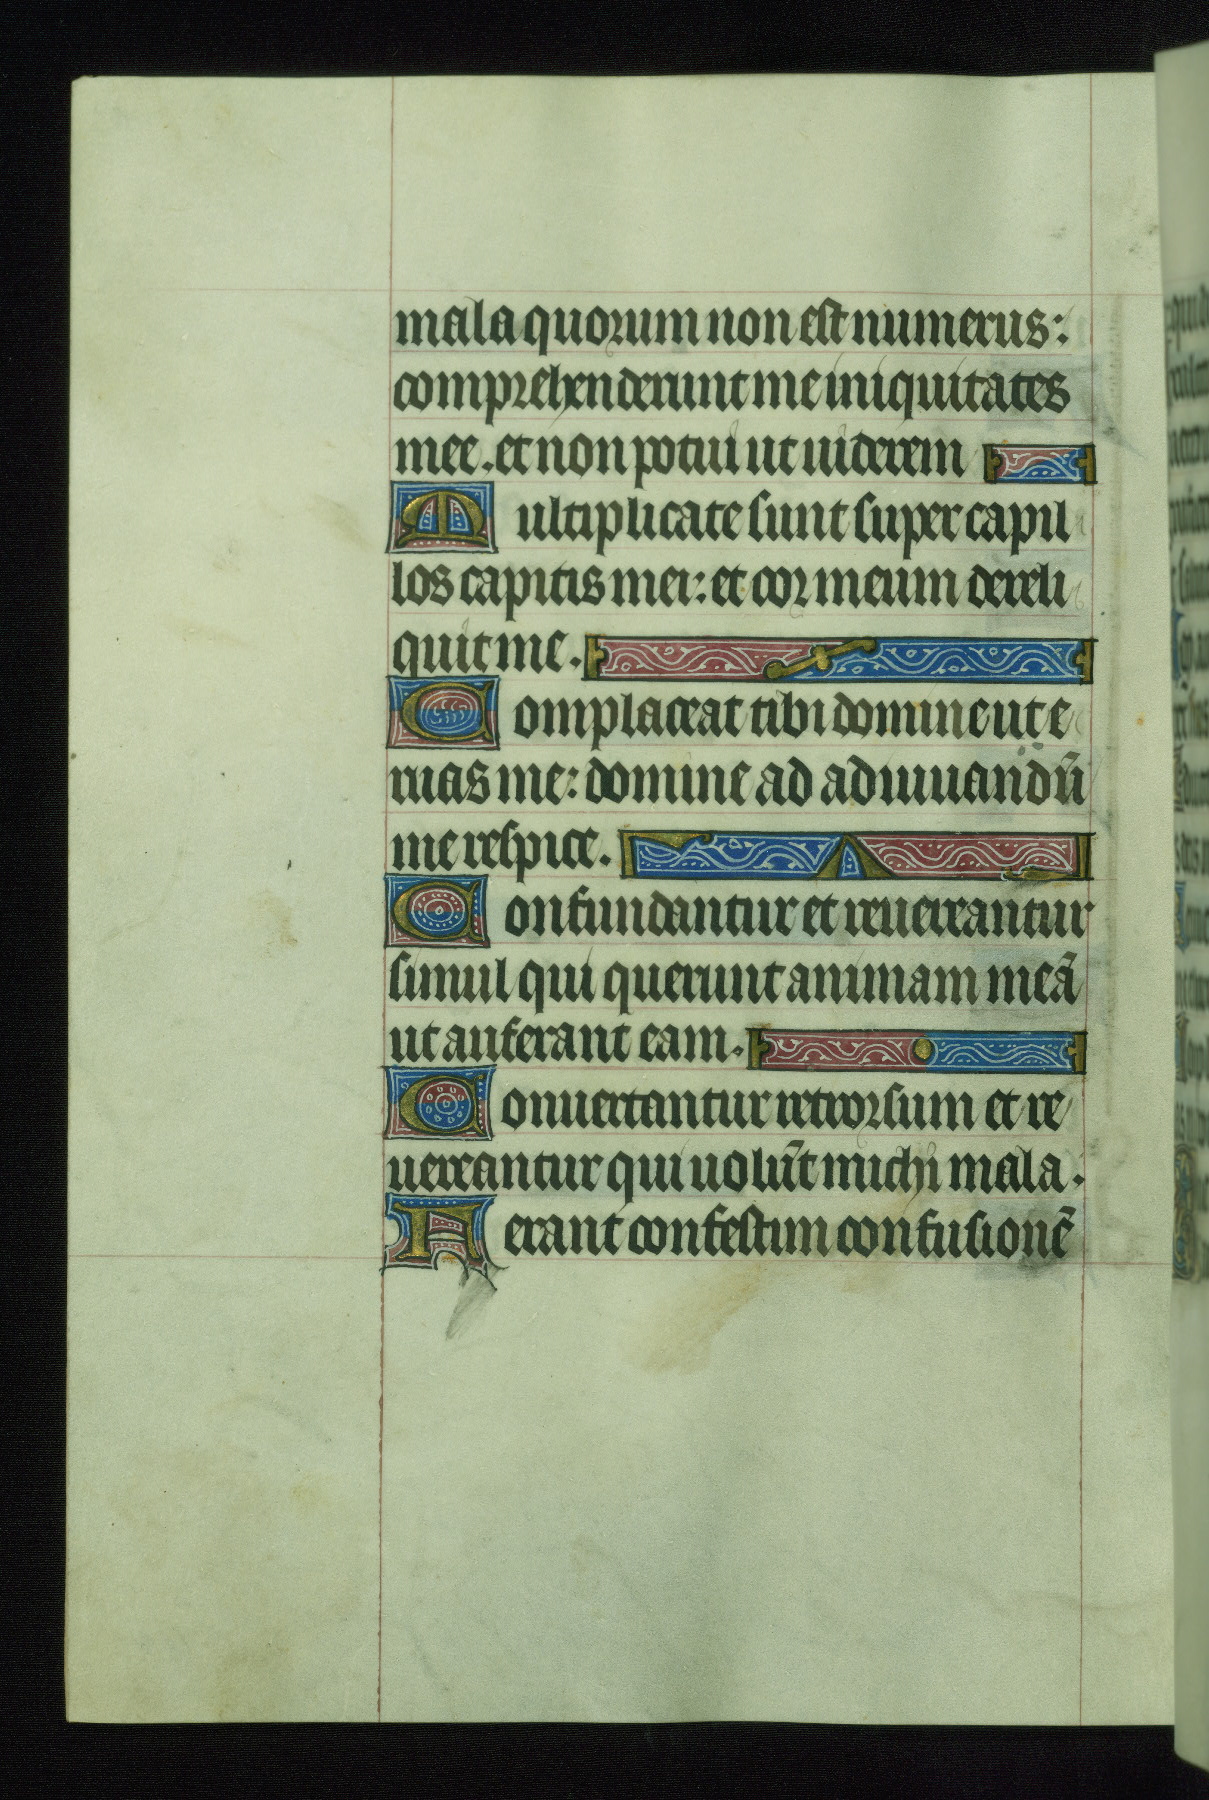 mala quorum non est numerus:
comprehenderunt me iniquitates
mee. et non potui ut uiderem
Multiplicate sunt super capil
los capitis mei: et cor meum dereli
quit me.
Complaceat tibi domine ut e
ruas me: domine ad adiuuandū
me respice.
Confundantur et reuereantur
simul qui querunt animam meā
ut auferant eam.
Conuertantur retrorsum et re
uereantur qui uolūt michi mala.
Ferant confestim confusionē